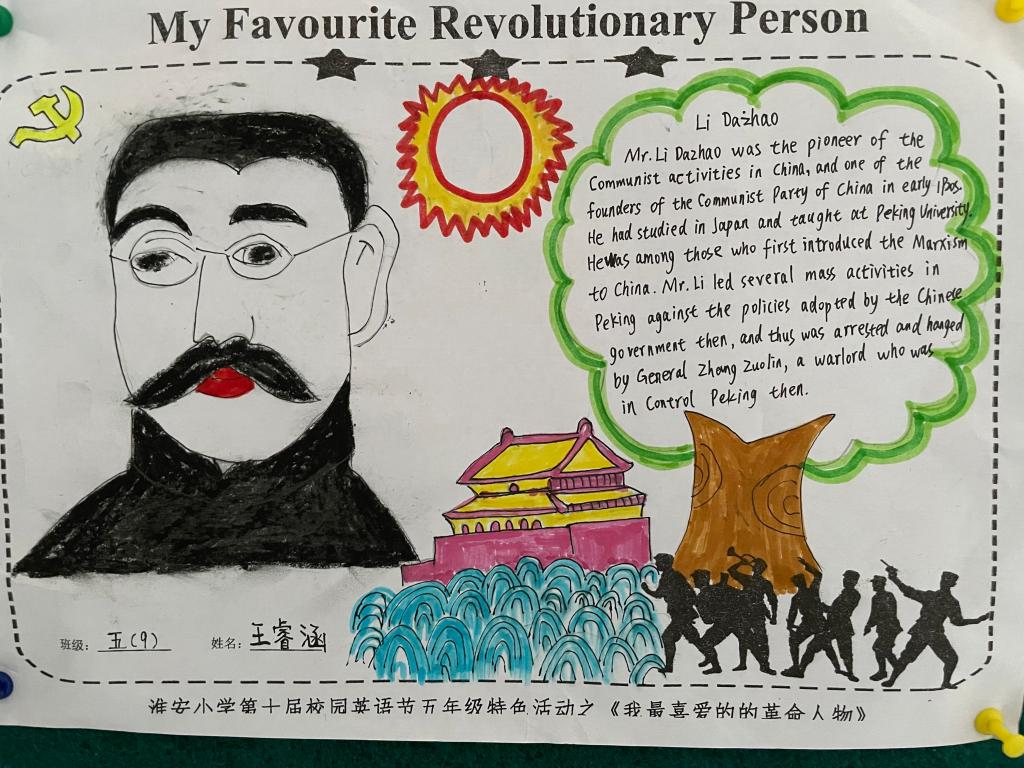 My Favourite Revolutionary Person
Li Dazhao
Mr. Li Dazhao was the pioneer of the
Communist activities in China, and one of the
founders of the Communist Party of China in early
He had studied in Japan and taught at Peking University.
He was among those who first introduced the Marxism
to China. Mr. Li led several mass activities in
Peking against the policies adopted by the Chinese
government then, and thus was arrested and hanged
by General Zhang Zuolin, a warlord who was
in Control Peking then.
班级: 五(9) 姓名: 王睿涵
淮安小学第十届校园英语节五年级特色活动之《我最喜爱的的革命人物》